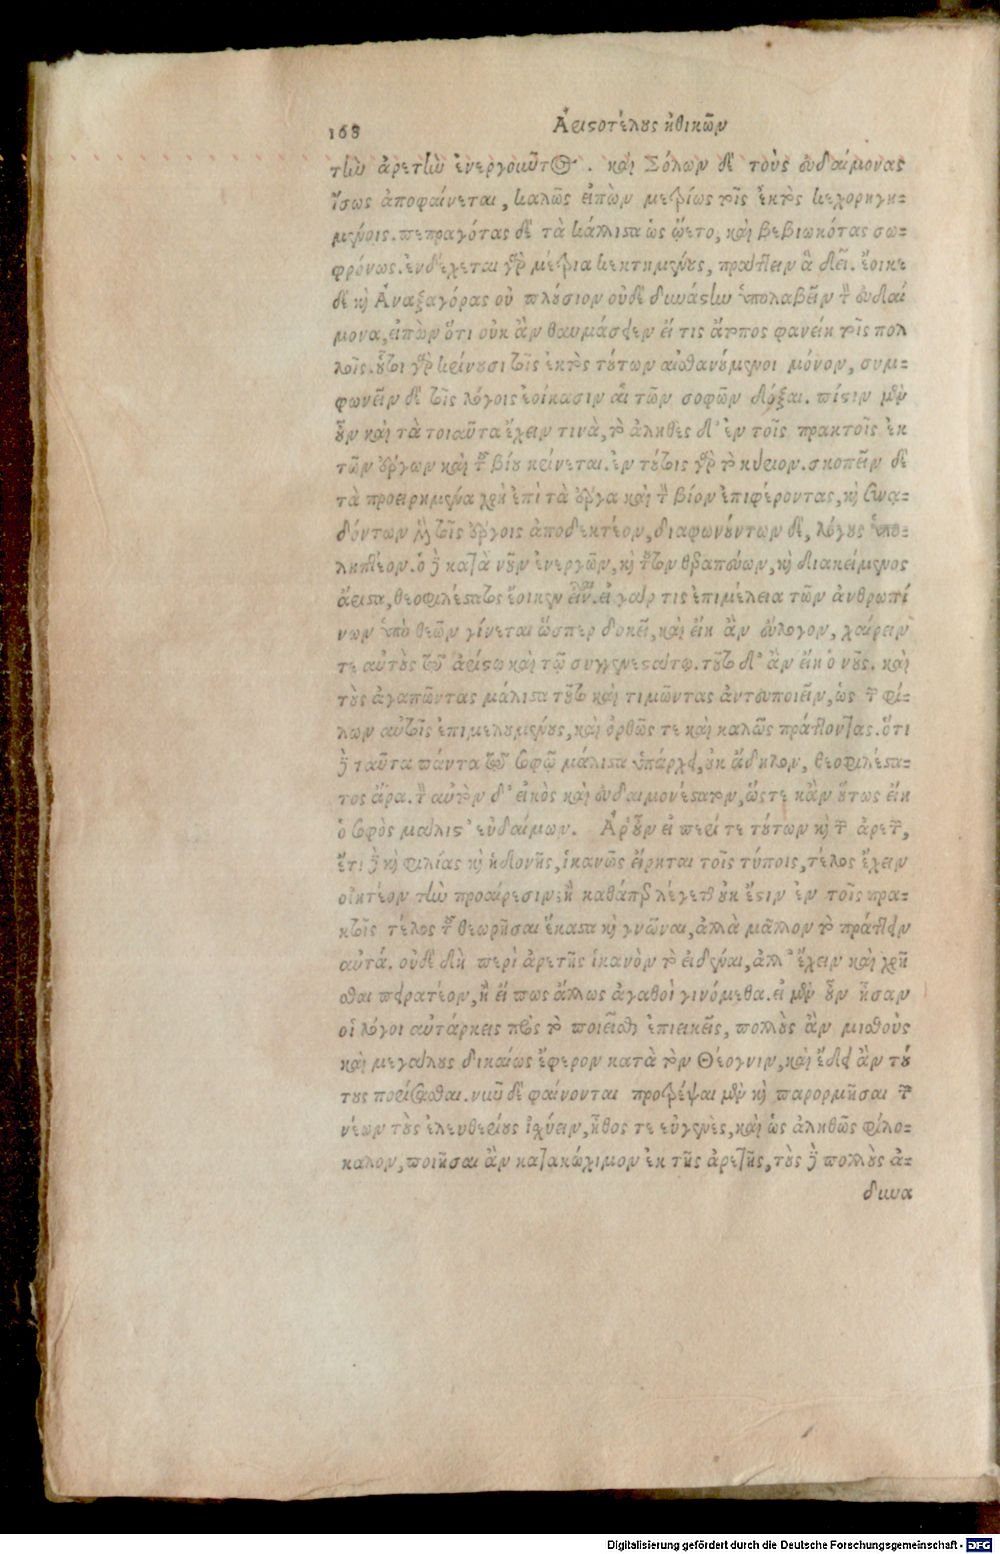 168 Ἀριστοτέλους ἠθικῶν
τὴν ἀρετὴν ἐνεργοῦντος. καὶ Σόλων δὲ τοὺς εὐδαίμονας
ἴσως ἀποφαίνεται, καλῶς εἰπὼν μετρίως τοῖς ἐκτὸς κεχορηγη-
μένοις. πεπραγότας δὲ τὰ κάλλιστα ὡς ᾤετο, καὶ βεβιωκότας σω-
φρόνως. ἐνδέχεται γὰρ μέτρια κεκτημένους, πράττειν ἃ δεῖ. ἔοικε
δὲ καὶ Ἀναξαγόρας οὐ πλούσιον οὐδὲ δυνάστην ὑπολαβεῖν τὸν εὐδαί
μονα, εἰπὼν ὅτι οὐκ ἂν θαυμάσειεν εἴ τις ἄτοπος φανείη τοῖς πολ
λοῖς. οὗτοι γὰρ κρίνουσι τοῖς ἐκτὸς τούτων αἰσθανόμενοι μόνον, συμ-
φωνεῖν δὲ τοῖς λόγοις ἐοίκασιν αἱ τῶν σοφῶν δόξαι. πίστιν μὲν
οὖν καὶ τὰ τοιαῦτα ἔχειν τινὰ, τὸ ἀληθὲς δ' ἐν τοῖς πρακτοῖς ἐκ
τῶν ἔργων καὶ τοῦ βίου κρίνεται. ἐν τούτοις γὰρ τὸ κύριον. σκοπεῖν δὲ
τὰ προειρημένα χρὴ ἐπὶ τὰ ἔργα καὶ τὸν βίον ἐπιφέροντας, καὶ συνᾳ-
δόντων μὲν τοῖς ἔργοις ἀποδεκτέον, διαφωνούντων δὲ, λόγους ὑπο-
ληπτέον. ὁ δὲ κατὰ νοῦν ἐνεργῶν, καὶ τοῦτον θεραπεύων, καὶ διακείμενος
ἄριστα, θεοφιλέστατος ἔοικεν εἶναι. εἰ γάρ τις ἐπιμέλεια τῶν ἀνθρωπί
νων ὑπὸ θεῶν γίνεται ὥσπερ δοκεῖ, καὶ εἴη ἂν εὔλογον, χαίρειν
τε αὐτοὺς τῷ ἀρίστῳ καὶ τῷ συγγενεστάτῳ. τοῦτο δ' ἂν εἴη ὁ νοῦς. καὶ
τοὺς ἀγαπῶντας μάλιστα τοῦτο καὶ τιμῶντας ἀντευποιεῖν, ὡς τῶν φί-
λων αὐτοῖς ἐπιμελουμένους, καὶ ὀρθῶς τε καὶ καλῶς πράττοντας. ὅτι
δὲ ταῦτα πάντα τῷ σοφῷ μάλιστα ὑπάρχει, οὐκ ἄδηλον, θεοφιλέστα-
τος ἄρα. τὸν αὐτὸν δ' εἰκὸς καὶ εὐδαιμονέστατον, ὥστε κἂν οὕτως εἴη
ὁ σοφὸς μάλιστ' εὐδαίμων. Ἆρ' οὖν εἰ περί τε τούτων καὶ τῶν ἀρετῶν,
ἔτι δὲ καὶ φιλίας καὶ ἡδονῆς, ἱκανῶς εἴρηται τοῖς τύποις, τέλος ἔχειν
οἰητέον τὴν προαίρεσιν; ἢ καθάπερ λέγεται οὐκ ἔστιν ἐν τοῖς πρα-
κτοῖς τέλος τοῦ θεωρῆσαι ἕκαστα καὶ γνῶναι, ἀλλὰ μᾶλλον τὸ πράττειν
αὐτά. οὐδὲ δὴ περὶ ἀρετῆς ἱκανὸν τὸ εἰδέναι, ἀλλ' ἔχειν καὶ χρῆ
σθαι πειρατέον, ἢ εἴ πως ἄλλως ἀγαθοὶ γινόμεθα. εἰ μὲν οὖν ἦσαν
οἱ λόγοι αὐτάρκεις πρὸς τὸ ποιεῖσθαι ἐπιεικεῖς, πολλοὺς ἂν μισθοὺς
καὶ μεγάλους δικαίως ἔφερον κατὰ τὸν Θέογνιν, καὶ ἔδει ἂν τού
τους πορίσασθαι. νῦν δὲ φαίνονται προτρέψαι μὲν καὶ παρορμῆσαι τῶν
νέων τοὺς ἐλευθερίους ἰσχύειν, ἦθος τε εὐγενὲς, καὶ ὡς ἀληθῶς φιλό-
καλον, ποιῆσαι ἂν κατακώχιμον ἐκ τῆς ἀρετῆς, τοὺς δὲ πολλοὺς ἀ-
δυνα
Digitalisierung gefördert durch die Deutsche Forschungsgemeinschaft - DFG